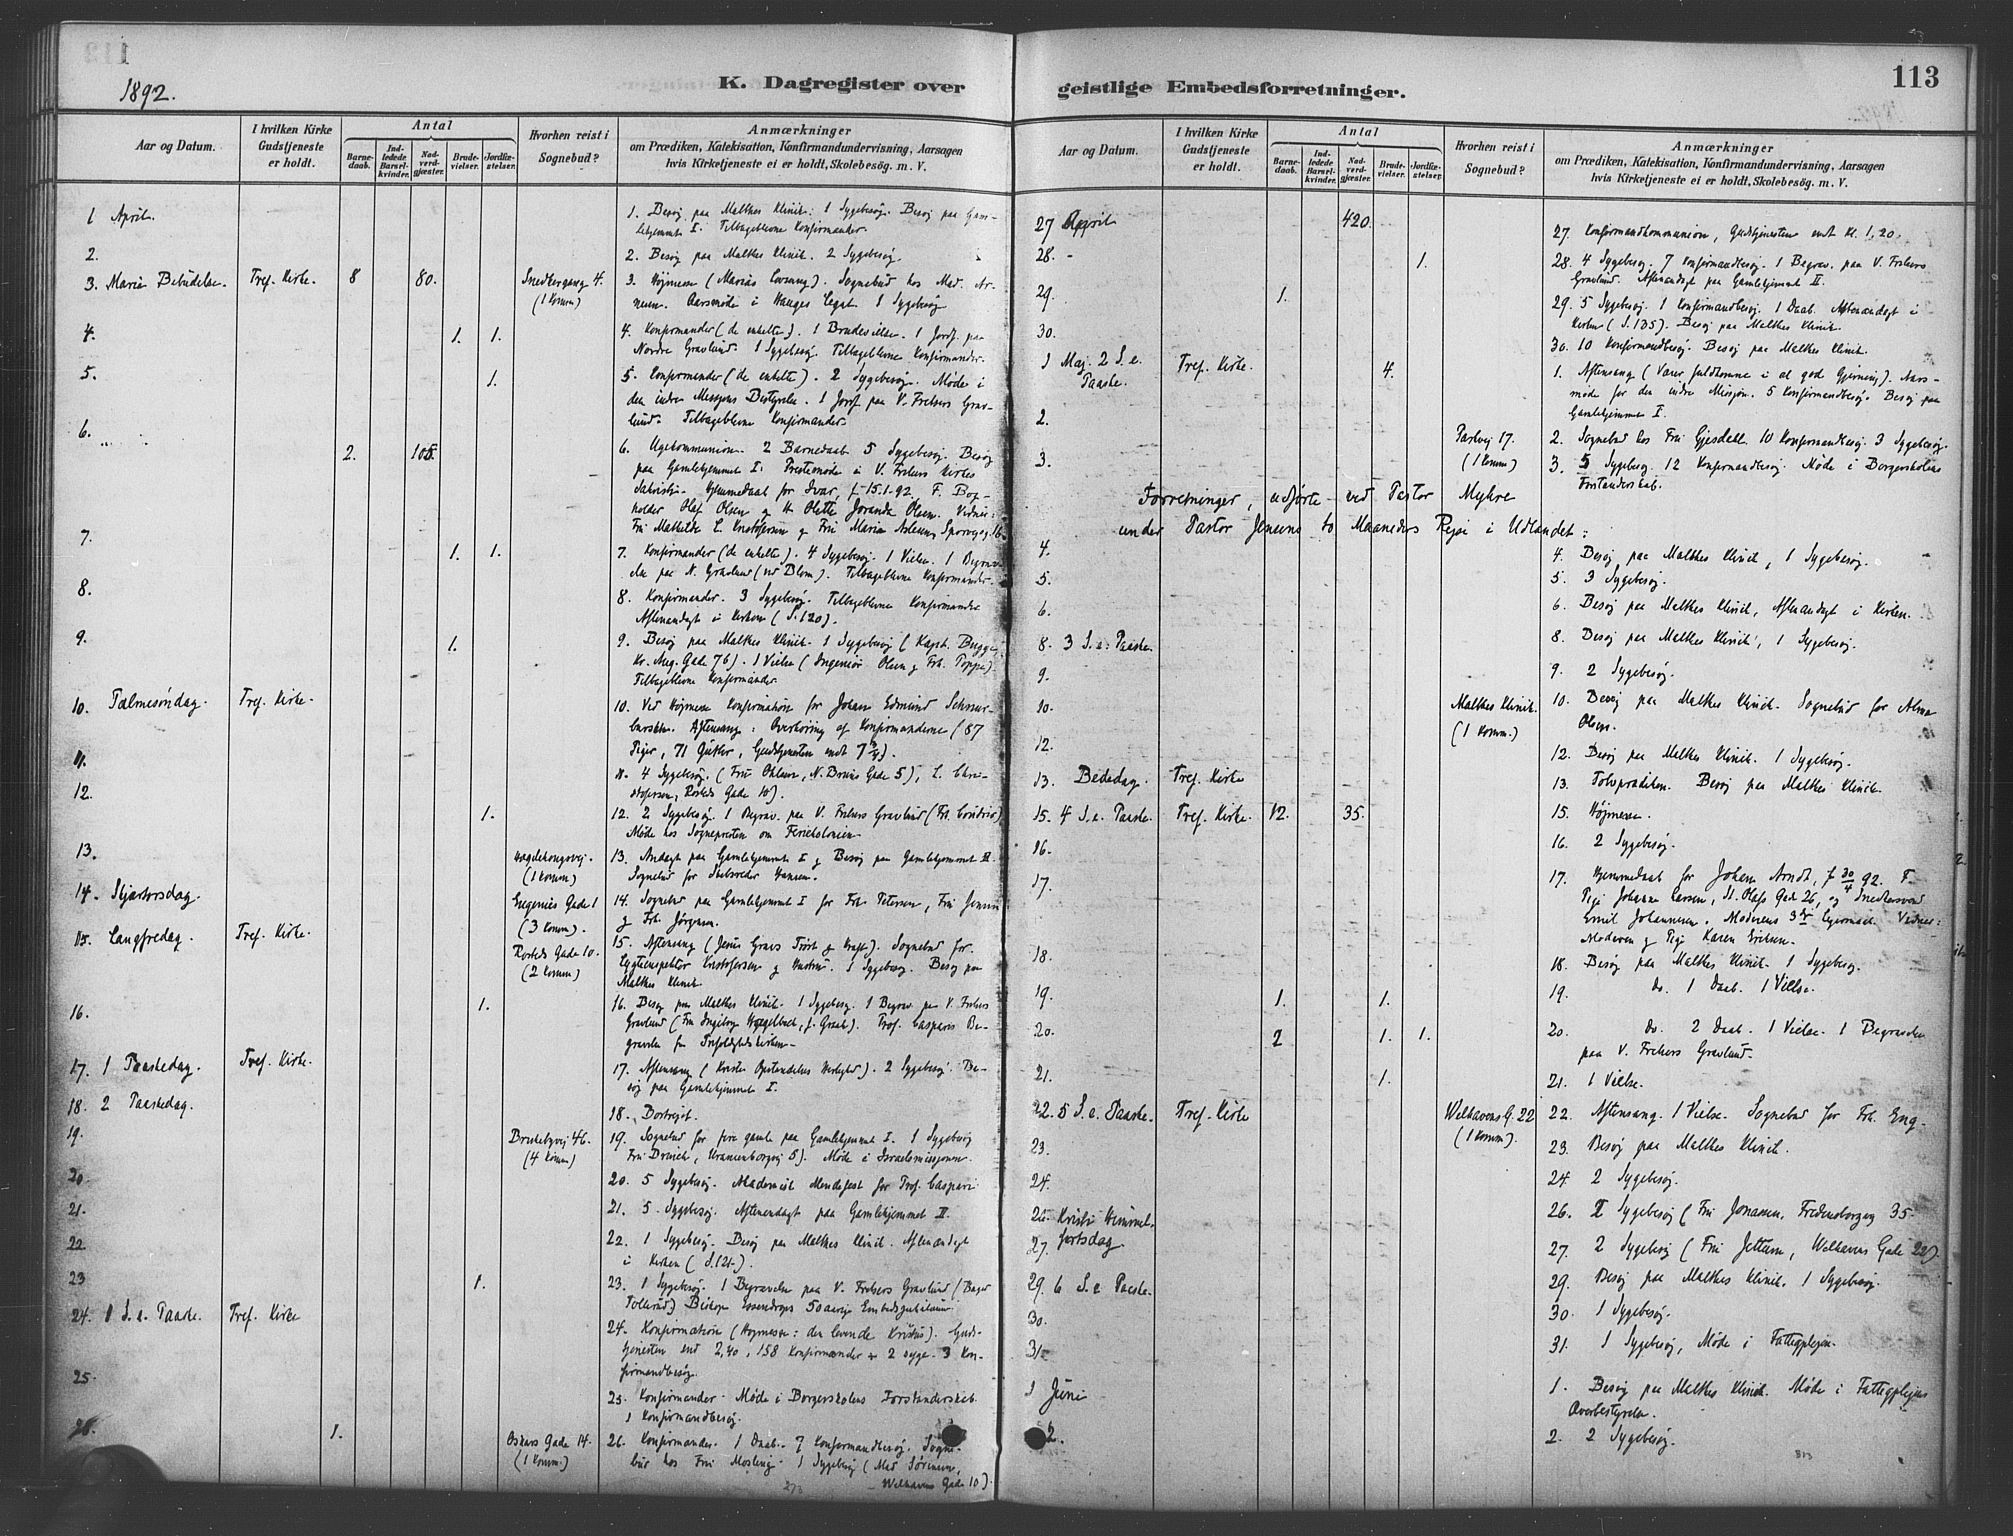 113
1892.
K. Dagregister over
geistlige Embedsforretninger.
Aar og Datum.
I hvilken Kirke Gudstjeneste er holdt.
Antal
Barnedaab.
Indledede Barselkvinder.
Nadverdgjæster.
Brudevielser.
Jordfæstelser.
Hvorhen reist i Sognebud?
Anmærkninger
om Prædiken, Katekisation, Konfirmandundervisning, Aarsagen
hvis Kirketjeneste ei er holdt, Skolebesøg. m. V.
1 April.
1. Besøg paa Malthes Klinik. 1 Sygebesøg. Besøg paa Gam-
lehjemmet I. Tilbageblevne Konfirmander.
2.
2. Besøg paa Malthes Klinik. 2 Sygebesøg.
3. Mariæ Bebudelse. Tref. Kirke. 8 80. Snedkergang 4.
(1 Komm)
3. Højmesse (Marias Lovsang). Sognebud hos Mad. Ar-
Aarsmøde i Hauges Legat. 1 Sygebesøg
4. 1. 1.
4. Konfirmander (de enkelte). 1 Brudevielse. 1 Jordf. paa
Nordre Gravlund. 1 Sygebesøg. Tilbageblevne Konfirmander.
5. 1.
5. Konfirmander (de enkelte). 2 Sygebesøg. Møde i
den indre Missions Bestyrelse. 1 Jordf. paa V. Frelsers Grav-
lund. Tilbageblevne Konfirmander.
6. 2. 105.
6. Ugekommunion. 2 Barnedaab. 5 Sygebesøg. Besøg
paa Gamlehjemmet I. Præstemøde i V. Frelsers Kirkes
Sakristi. Hjemmedaab for Ivar, f. 15.1.92. F. Bog-
holder Olaf Olsen og H. Olette Jorande Olsen. Vidner:
7. 1. 1.
7. Konfirmander (de enkelte). 4 Sygebesøg. 1 Vielse. 1 Begrav-
else paa N. Gravlund (ved Blom). Tilbageblevne Konfirmander.
8.
8. Konfirmander. 3 Sygebesøg. Tilbageblevne Konfirmander
Aftenandagt i Kirken (S. 120).
9. 1.
9. Besøg paa Malthes Klinik. 1 Sygebesøg (Kapt. Bugge,
Kr. Aug. Gade 76). 1 Vielse (Ingeniør Olsen og Frk. Poppe).
Tilbageblevne Konfirmander
10. Palmesøndag. Tref. Kirke.
10. Ved Højmesse Konfirmation for Johan Edmund
Aftensang: Overhøring af Konfirmanderne (87
Piger, 71 Gutter, Gudstjenesten endt 7¾).
11.
11. 4 Sygebesøg. (Fru Ohlsen, N. Bruns Gade 5), L. Chri-
stofersen, Rosteds Gade 10).
12. 1.
12. 2 Sygebesøg. 1 Begrav. paa V. Frelsers Gravlund
Møde hos Sognepresten om Feriekolonien
13. (1 Komm)
13. Andagt paa Gamlehjemmet I og Besøg paa Gamlehjemmet II.
Sognebud for Hansen.
14. Skjærtorsdag. Eugenies Gade 1
(3 Komm).
14. Sognebud paa Gamlehjemmet I for Frk. Petersen, Fru Jensen
og Frk. Jørgensen.
15. Langfredag. Tref. Kirke. Rosteds Gade 10.
(2 Komm)
15. Aftensang (Jesus Gravs Trøst og Kraft). Sognebud for
Kristofersen og Hustru. 1 Sygebesøg. Besøg paa
Malthes Klinik.
16. 1.
16. Besøg paa Malthes Klinik. 1 Sygebesøg. 1 Begrav. paa V. Frelsers
Gravlund (Fru Ingeborg f. Graah). Prof. Casparis Be-
gravelse fra Trefoldighedskirken.
17. 1 Paaskedag. Tref. Kirke.
17. Aftensang (Kristi Opstandelses Herlighed). 2 Sygebesøg. Be-
søg paa Gamlehjemmet I.
18. 2 Paaskedag.
18. Bortrejst.
19. (4 Komm)
19. Sognebud for fire gamle paa Gamlehjemmet I. 1 Sygebesøg
Uranienborgvej 5). Møde i Israelsmissjonen.
20.
20. 5 Sygebesøg. Akademisk Mindefest for Prof. Caspari
21.
21. 5 Sygebesøg. Aftenandagt paa Gamlehjemmet II.
22
22. 1 Sygebesøg. Besøg paa Malthes Klinik. Aftenandagt
i Kirken
23 1.
23. 1 Sygebesøg. 1 Begravelse paa V. Frelsers Gravlund (Bager
Tollerud) Biskop Essendrops 50aarige Embedsjubilæum
24. 1 S. e. Paaske. Tref. Kirke
24. Konfirmation (Højmesse: den levende Kristus). Guds-
tjenesten endt 2,40. 158 Konfirmander 2 syge. 3 Kon-
firmandbesøg.
25.
25. Konfirmander. Møde i Borgerskolens Forstanderskab.
1 Konfirmandbesøg.
26. 1. Oskars Gade 14.
(1 Komm.)
26. Konfirmander. 1 Daab. 7 Konfirmandbesøg. Sogne-
bud hos Fru 1 Sygebesøg (Mad. Sørensen,
Welhavens Gade 10).
273
Aar og Datum.
I hvilken Kirke Gudstjeneste er holdt.
Antal
Barnedaab.
Indledede Barselkvinder.
Nadverdgjæster.
Brudevielser.
Jordfæstelser.
Hvorhen reist i Sognebud?
Anmærkninger
om Prædiken, Katekisation, Konfirmandundervisning, Aarsagen
hvis Kirketjeneste ei er holdt, Skolebesøg. m. V.
27 April 420.
27. Konfirmandkommunion, Gudstjenesten endt kl. 1,20.
28. - 1.
28. 4 Sygebesøg. 7 Konfirmandbesøg. 1 Begrav. paa V. Frelsers
Gravlund. Aftenandagt paa Gamlehjemmet II.
29. 1.
29. 5 Sygebesøg. 1 Konfirmandbesøg. 1 Daab. Aftenandagt i
Kirken (S. 135). Besøg paa Malthes Klinik.
30.
30. 10 Konfirmandbesøg. Besøg paa Malthes Klinik.
1 Maj. 2 S. e.
Paaske. Tref. Kirke. 4.
1. Aftensang (Være fuldkomne i al god Gjerning). Aars-
møde for den indre Missjon. 5 Konfirmandbesøg. Besøg paa
Gamlehjemmet I.
2. Parkvej 17.
(1 Komm)
2. Sognebud hos Fru Gjesdall. 10 Konfirmandbesøg. 3 Sygebesøg.
3.
3. 5 Sygebesøg. 12 Konfirmandbesøg. Møde i Borgerskolens
Forstanderskab.
Forretninger, udførte ved Pastor Myhre
under Pastor Jensens to Maaneders Rejse i Udlandet:
4.
4. Besøg paa Malthes Klinik, 1 Sygebesøg.
5.
5. 3 Sygebesøg.
6.
6. Besøg paa Malthes Klinik, Aftenandagt i Kirken.
8. 3 S. e. Paaske.
8. Besøg paa Malthes Klinik, 1 Sygebesøg.
9.
9. 2 Sygebesøg.
10. Malthes Klinik.
(1 Komm.)
10. Besøg paa Malthes Klinik. Sognebud for Alma
Olsen.
12.
12. Besøg paa Malthes Klinik. 1 Sygebesøg.
13. Bededag. Tref. Kirke
13. Tolvprædiken. Besøg paa Malthes Klinik.
15. 4 S. e. Paaske. Tref. Kirke. 12. 35.
15. Højmesse.
16.
16. 2 Sygebesøg.
17.
17. Hjemmedaab for Johan Arndt, f. 30/4 92. F.
Pige Johanne Larsen, St. Olafs Gade 26, og Snedkersvend
Emil Johannesen. Moderens 3die Lejermaal. Vidner:
Moderen og Pige Karen Eriksen.
18.
18. Besøg paa Malthes Klinik. 1 Sygebesøg.
19. 1. 1.
19. do. 1 Daab. 1 Vielse.
20. 2 1. 1.
20. do. 2 Daab. 1 Vielse. 1 Begravelse
paa V. Frelsers Gravlund.
21. 1.
21. 1 Vielse.
22. 5 S. e. Paaske. Tref. Kirke Welhavens G. 22
(1 Komm).
22. Aftensang. 1 Vielse. Sognebud for Frk. Eng.
23.
23. Besøg paa Malthes Klinik.
24.
24. 2 Sygebesøg.
26. Kristi Himmel-
26. 2 Sygebesøg (Fru Johansen, Fredensborgvej 35.
27. fartsdag.
27. 2 Sygebesøg (Fru Welhavens Gade 22).
29. 6 S. e. Paaske.
29. Besøg paa Malthes Klinik. 1 Sygebesøg.
30.
30. 1 Sygebesøg.
31.
31. 1 Sygebesøg, Møde i Fattigplejen.
1 Juni
1. Besøg paa Malthes Klinik. Møde i Fattigplejens
Overbestyrelse.
2.
2. 2 Sygebesøg.
313